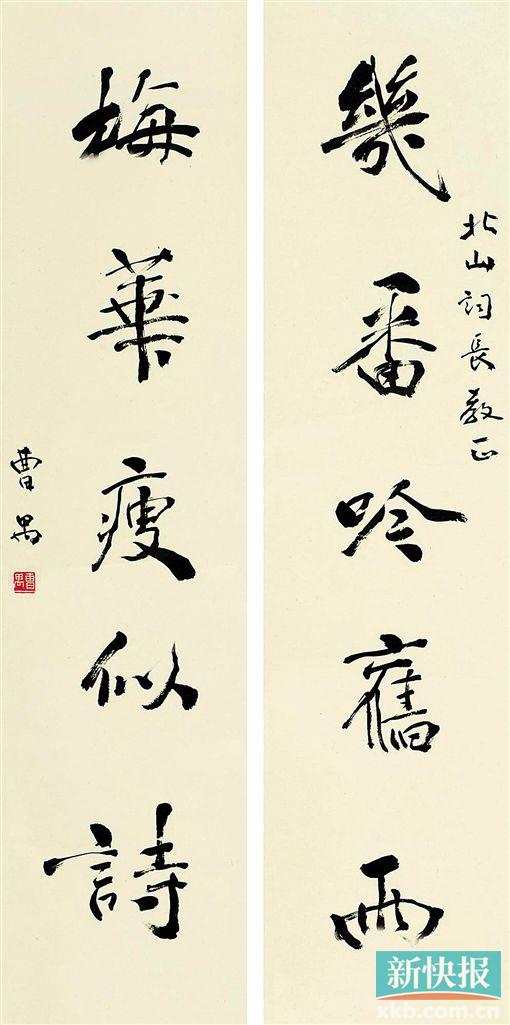 北山詞長教正
幾番吟舊雨
梅華瘦似詩
曹禺
新快报
xkb.com.cn